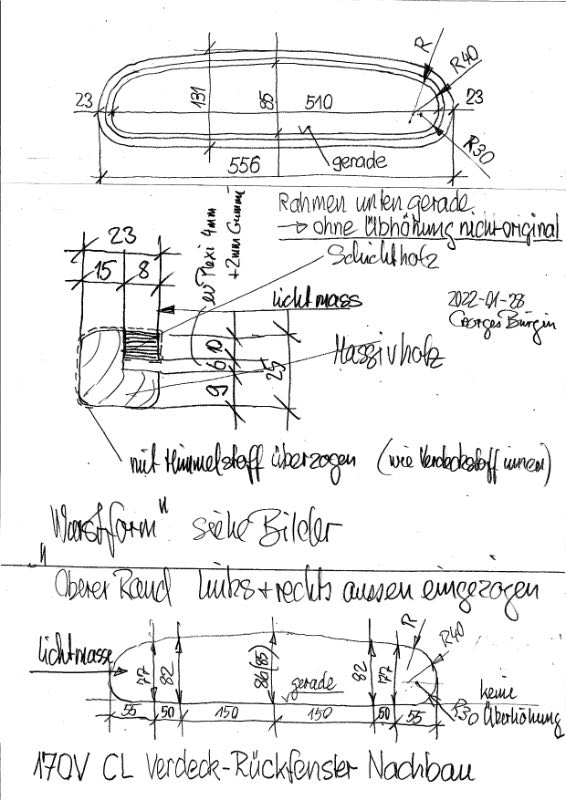 R
R40
23
131
85
510
23
R30
gerade
556
Rahmen unten gerade
→ ohne Übhöhung nicht original
23
ev Plexi 4mm
+2mm Gummi
Schichtholz
15
8
lichtmass
2022-01-28
Georges Bürgin
10
6
9
25
Massivholz
mit Himmelstoff überzogen (wie Verdeckstoff innen)
"Wurstform" siehe Bilder
Oberer Rand links + rechts aussen eingezogen
R
R40
lichtmasse
77
82
86(85)
82
77
gerade
keine
Überhöhung
R30
55
50
150
150
50
55
170V CL Verdeck-Rückfenster Nachbau